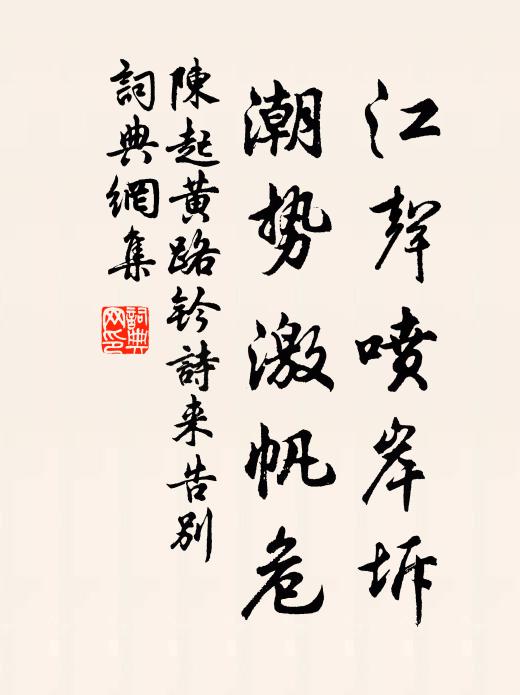 江聲喷岸坼
潮势激帆危
陳起黄路鈐詩来告别
詞典網集
詞典
网印